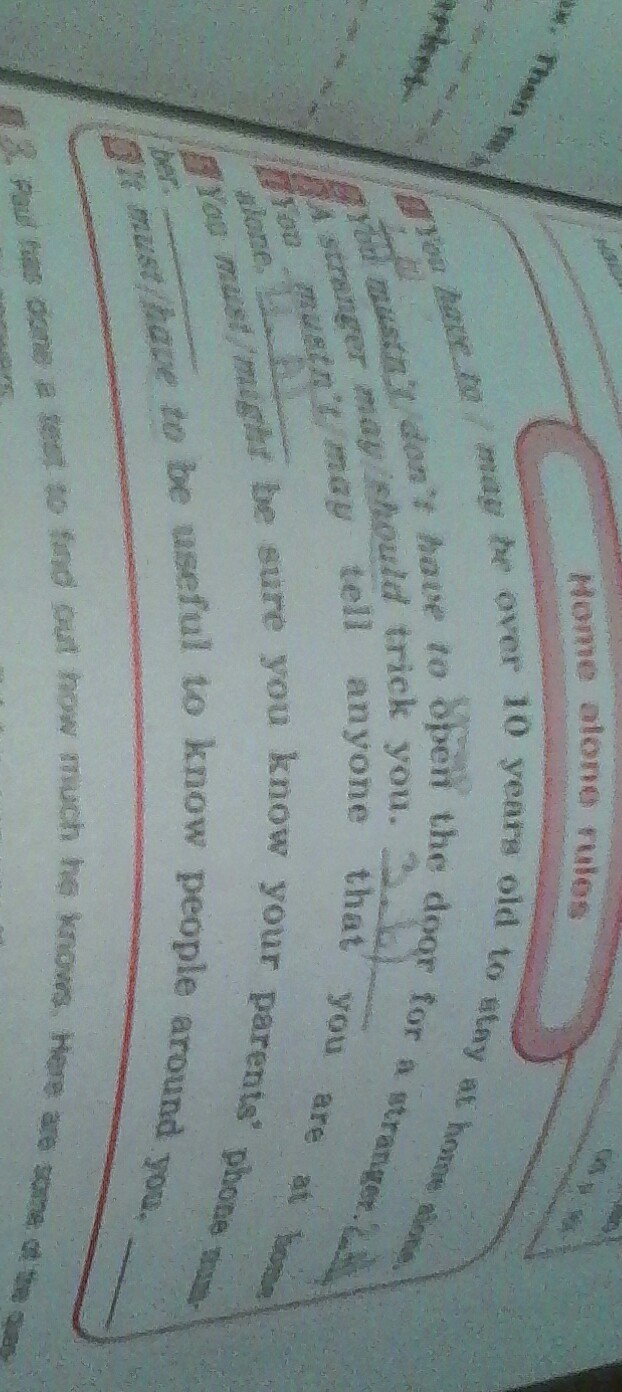 Then
Home alone rules
You have to / may be over 10 years old to stay at home alone.
You mustn't/don't have to open the door for a stranger.
A stranger may/should trick you.
You mustn't/may tell anyone that you are at home
alone.
You must/might be sure you know your parents' phone num-
ber.
It must/have to be useful to know people around you.
Paul has done a test to find out how much he knows. Here are some of the ques-